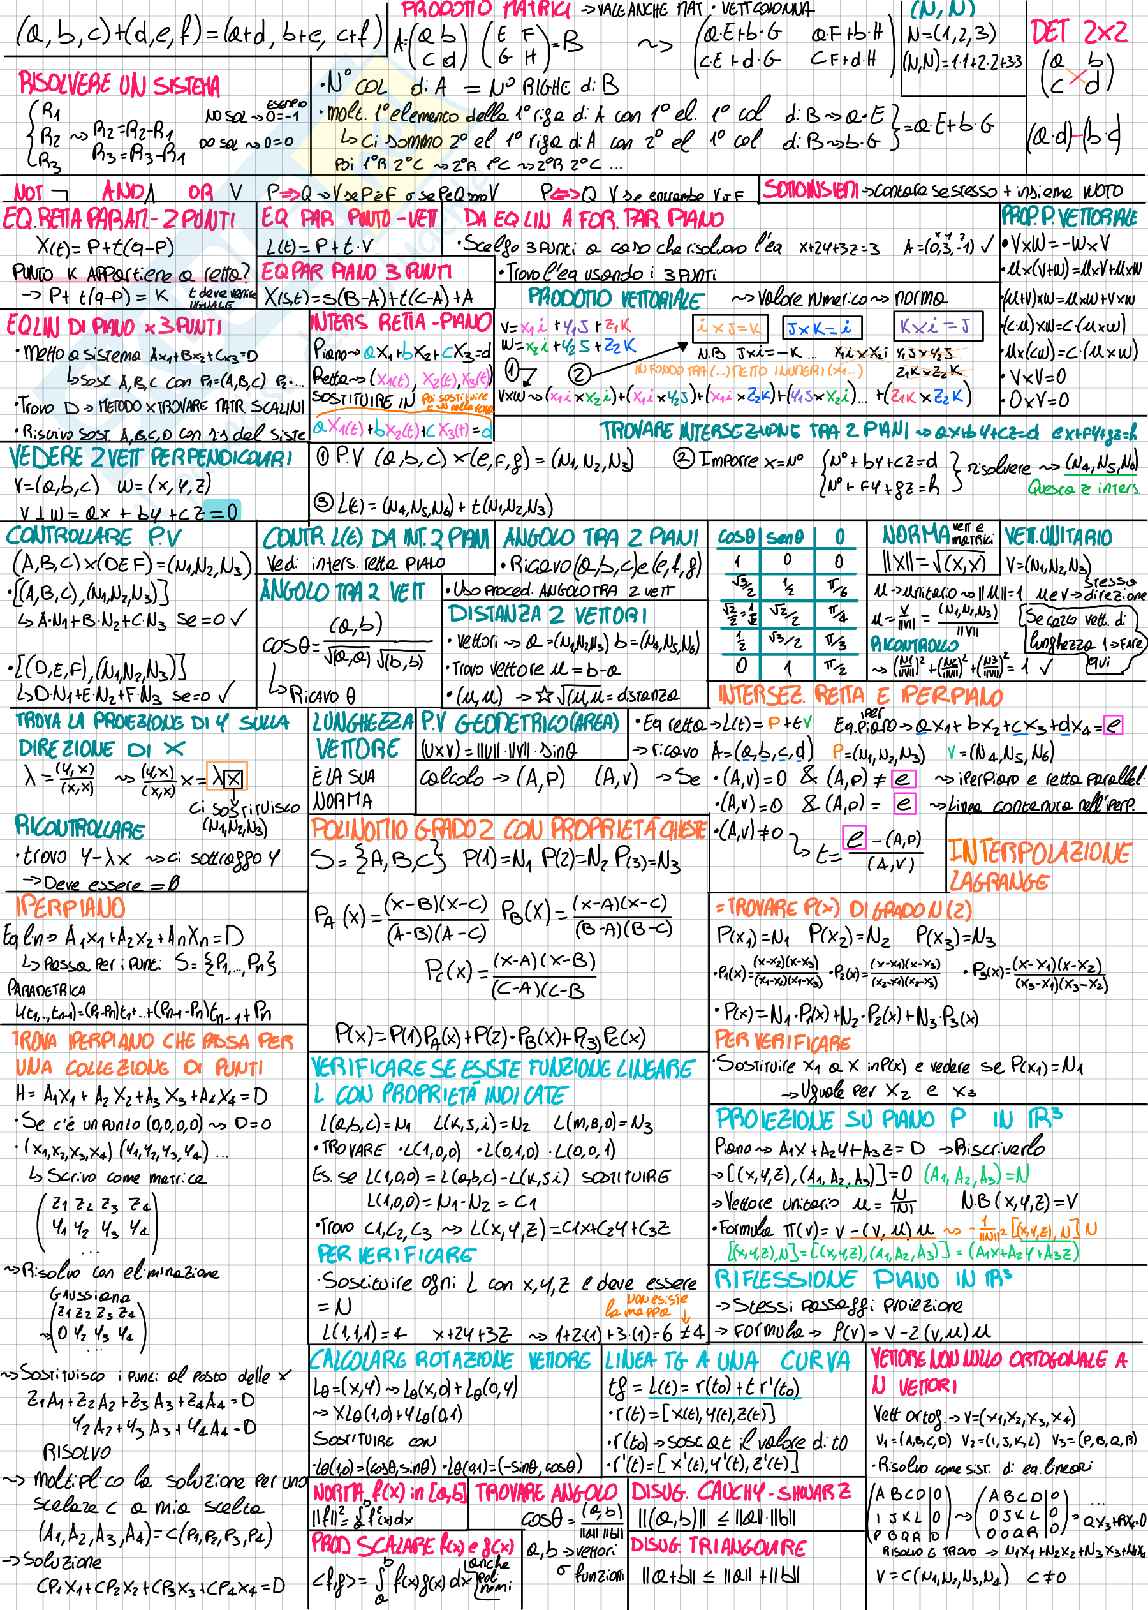 (a, b, c)+(d, e, f)=(a+d, b+e, c+f)
PRODOTTO MATRICI → VALE ANCHE MAT · VETT COLONNA
A=(a b
c d) (E F
G H)=B ~> (a·E+b·G aF+b·H
c·E+d·G CF+d·H)
(N, N)
N=(1,2,3)
(N,N)=1·1+2·2+3·3
DET 2x2
(a b
c d)
(a·d)-(b·c)
RISOLVERE UN SISTEMA
{R1
R2 ~> R2=R2-R1
R3 R3=R3-R1
NO SOL → 0=-1
∞ SOL → 0=0
ESEMPIO
·N° COL di A = N° RIGHE di B
·molt. 1° elemento della 1° riga di A con 1° el. 1° col di B ~> a·E
↳ Ci sommo 2° el 1° riga di A con 2° el 1° col di B ~> b·G
}=aE+b·G
Poi 1°R 2°C ~> 2°R 1°C ~> 2°R 2°C ...
NOT ¬ AND ∧ OR V P⇒Q ~> V se P è F o se P e Q sono V P⇔Q V se entrambe V o F
SOTTOINSIEMI → contare se stesso + insieme VUOTO
EQ. RETTA PARAM. - 2 PUNTI
X(t)=P+t(q-P)
PUNTO K APPARTIENE a retta?
→ P+t(q-P)=K t deve venire UGUALE
EQ PAR PUNTO-VETT
L(t)=P+t·V
EQ PAR PIANO 3 PUNTI
X(s,t)=s(B-A)+t(C-A)+A
DA EQ LIN A FOR. PAR PIANO
·Scelgo 3 punti a caso che risolvono l'eq x+2y+3z=3 A=(0,3,-1) ✓
·Trovo l'eq usando i 3 PUNTI
PROP. P. VETTORIALE
·V×W=-W×V
·u×(v+w)=u×v+u×w
·(u+v)×w=u×w+v×w
·(c·u)×w=c·(u×w)
·u×(cw)=c·(u×w)
·V×V=0
·0×V=0
EQ LIN DI PIANO x 3 PUNTI
·Metto a sistema Ax1+Bx2+Cx3=D
↳ Sost A,B,C con P1=(A,B,C) P2...
·Trovo D → METODO x TROVARE MATR SCALINI
·Riscrivo sost A,B,C,D con ris del siste
INTERS RETTA-PIANO
Piano ~> aX1+bX2+cX3=d
Retta ~> (X1(t), X2(t), X3(t))
SOSTITUIRE IN
Poi sostituire
aX1(t)+bX2(t)+cX3(t)=d
PRODOTTO VETTORIALE ~> Valore numerico ~> norma
V=x1i+y1j+z1k
W=x2i+y2j+z2k
i×j=k j×k=i k×i=j
N.B j×i=-k ... x1i×x2i y1j×y2j
z1k×z2k
IN FONDO TRA (...) METTO I NUMERI (x1...)
① ②
V×W ~> (x1i×x2i)+(x1i×y2j)+(x1i×z2k)+(y1j×x2i)...+(z1k×z2k)
TROVARE INTERSEZIONE TRA 2 PIANI ~> ax+by+cz=d ex+fy+gz=h
① P.V (a,b,c)×(e,f,g)=(N1,N2,N3)
② Imporre x=N° {N°+by+cz=d
N°+fy+gz=h} risolvere ~> (N4,N5,N6)
Questa è inters.
③ L(t)=(N4,N5,N6)+t(N1,N2,N3)
VEDERE 2 VETT PERPENDICOLARI
V=(a,b,c) W=(x,y,z)
V⊥W=ax+by+cz=0
CONTROLLARE P.V
(A,B,C)×(D,E,F)=(N1,N2,N3)
·[(A,B,C),(N1,N2,N3)]
↳ A·N1+B·N2+C·N3 se=0 ✓
·[(D,E,F),(N1,N2,N3)]
↳ D·N1+E·N2+F·N3 se=0 ✓
CONTR. L(t) DA INT. 2 PIANI
Vedi inters. retta PIANO
ANGOLO TRA 2 VETT
cosθ=(a,b)/√(a,a) √(b,b)
↳ Ricavo θ
ANGOLO TRA 2 PIANI
·Ricavo (a,b,c) e (e,f,g)
·Uso proced. ANGOLO TRA 2 VETT
DISTANZA 2 VETTORI
·Vettori ~> a=(N1,N2,N3) b=(N4,N5,N6)
·Trovo vettore u=b-a
·(u,u) → ☆ √(u,u)=distanza
cosθ senθ θ
1 0 0
√3/2 1/2 π/6
√2/2=1/√2 √2/2 π/4
1/2 √3/2 π/3
0 1 π/2
NORMA vett e matrici
||X||=√(x,x)
VETT. UNITARIO
V=(N1,N2,N3)
u → unitario ~> ||u||=1 u e v → stessa direzione
u=v/||v||=(N1,N2,N3)/||v||
RICONTROLLO
→ (N1/||v||)²+(N2/||v||)²+(N3/||v||)²=1 ✓
Se cerco vett. di lunghezza 1 → fare qui
TROVA LA PROIEZIONE DI Y SULLA
DIREZIONE DI X
λ=(y,x)/(x,x) ~> (y,x)/(x,x) x=λx
Ci sostituisco
(N1,N2,N3)
RICONTROLLARE
·trovo y-λx ~> ci sottraggo y
→ Deve essere =0
LUNGHEZZA
VETTORE
È LA SUA
NORMA
P.V GEOMETRICO (AREA)
(u×v)=||u||·||v||·sinθ
INTERSEZ. RETTA E IPERPIANO
·Eq retta → L(t)=P+tV Eq. iper Piano → ax1+bx2+cx3+dx4=e
→ ricavo A=(a,b,c,d) P=(N1,N2,N3) V=(N4,N5,N6)
calcolo → (A,P) (A,v) → Se
·(A,v)=0 & (A,p)≠e ~> iperpiano e retta parallel
·(A,v)=0 & (A,p)=e ~> Linea contenuta nell'iperp.
·(A,v)≠0
↳ t=e-(A,p)/(A,v)
POLINOMIO GRADO 2 CON PROPRIETÀ CHIESTE
S={A,B,C} P(1)=N1 P(2)=N2 P(3)=N3
PA(x)=(x-B)(x-C)/(A-B)(A-C) PB(x)=(x-A)(x-C)/(B-A)(B-C)
PC(x)=(x-A)(x-B)/(C-A)(C-B
P(x)=P(1)PA(x)+P(2)·PB(x)+P(3)PC(x)
INTERPOLAZIONE
LAGRANGE
=TROVARE P(x) DI GRADO N(2)
P(x1)=N1 P(x2)=N2 P(x3)=N3
·P1(x)=(x-x2)(x-x3)/(x1-x2)(x1-x3) ·P2(x)=(x-x1)(x-x3)/(x2-x1)(x2-x3) ·P3(x)=(x-x1)(x-x2)/(x3-x1)(x3-x2)
·P(x)=N1·P1(x)+N2·P2(x)+N3·P3(x)
PER VERIFICARE
·Sostituire x1 a x in P(x) e vedere se P(x1)=N1
→ Uguale per x2 e x3
IPERPIANO
Eq lin → A1x1+A2x2+AnXn=D
↳ Passa per i punti S={P1,...,Pn}
PARAMETRICA
L(t1,...,tn-1)=(P1-Pn)t1+...+(Pn-1-Pn)tn-1+Pn
TROVA IPERPIANO CHE PASSA PER
UNA COLLEZIONE DI PUNTI
H=A1X1+A2X2+A3X3+A4X4=D
·Se c'è un punto (0,0,0,0) ~> D=0
·(x1,x2,x3,x4) (y1,y2,y3,y4) ...
↳ Scrivo come matrice
(z1 z2 z3 z4
y1 y2 y3 y4
...)
~> Risolvo con eliminazione
Gaussiana
→ (z1 z2 z3 z4
0 y2 y3 y4)
~> Sostituisco i punti al posto delle x
z1A1+z2A2+z3A3+z4A4=0
y2A2+y3A3+y4A4=0
RISOLVO
~> moltiplico la soluzione per uno
scalare c a mia scelta
(A1,A2,A3,A4)=c(P1,P2,P3,P4)
→ Soluzione
cP1x1+cP2x2+cP3x3+cP4x4=D
VERIFICARE SE ESISTE FUNZIONE LINEARE
L CON PROPRIETÀ INDICATE
L(a,b,c)=N1 L(k,s,i)=N2 L(m,B,0)=N3
·TROVARE ·L(1,0,0) ·L(0,1,0) ·L(0,0,1)
Es. se L(1,0,0)=L(a,b,c)-L(k,s,i) SOSTITUIRE
L(1,0,0)=N1-N2=C1
·Trovo C1,C2,C3 ~> L(x,y,z)=C1x+C2y+C3z
PER VERIFICARE
·Sostituire ogni L con x,y,z e deve essere
=N
non esiste
la mappa
L(1,1,1)=4 x+2y+3z ~> 1+2·(1)+3·(1)=6≠4
PROIEZIONE SU PIANO P IN R³
Piano ~> A1x+A2y+A3z=D → Riscriverlo
→ [(x,y,z),(A1,A2,A3)]=0 (A1,A2,A3)=N
→ Vettore unitario u=N/||N|| N.B (x,y,z)=V
·Formula π(v)=v-(v,u)u ~> -1/||N||² [(x,y,z),N]N
[(x,y,z),N]=[(x,y,z),(A1,A2,A3)]=(A1x+A2y+A3z)
RIFLESSIONE PIANO IN R³
→ Stessi passaggi proiezione
→ FORMULA → ρ(v)=v-2(v,u)u
CALCOLARE ROTAZIONE VETTORE
Lθ=(x,y) ~> Lθ(x,0)+Lθ(0,y)
~> xLθ(1,0)+yLθ(0,1)
SOSTITUIRE CON
·Lθ(1,0)=(cosθ,sinθ) ·Lθ(0,1)=(-sinθ,cosθ)
LINEA TG A UNA CURVA
tg=L(t)=r(t0)+t r'(t0)
·r(t)=[x(t),y(t),z(t)]
·r(t0) → sost a t il valore di t0
·r'(t)=[x'(t),y'(t),z'(t)]
VETTORE NON NULLO ORTOGONALE A
N VETTORI
Vett ortog → V=(x1,x2,x3,x4)
V1=(A,B,C,D) V2=(I,J,K,L) V3=(P,B,Q,R)
·Risolvo come sist. di eq. lineari
(A B C D|0
I J K L|0
P B Q R|0) ~> (A B C D|0
0 J K L|0
0 0 Q R|0) ...
=QX3+RX4=0
RISOLVO E TROVO → N1X1+N2X2+N3X3+N4X4
V=C(N1,N2,N3,N4) C≠0
NORMA f(x) in [a,b]
||f||²=∫ab f²(x)dx
TROVARE ANGOLO
cosθ=(a,b)/||a||·||b||
a,b → vettori
o funzioni
DISUG. CAUCHY-SHWARZ
||(a,b)|| ≤ ||a||·||b||
PROD SCALARE f(x) e g(x)
<f,g>=∫ab f(x)g(x)dx (anche polinomi
DISUG. TRIANGOLARE
||a+b|| ≤ ||a||+||b||